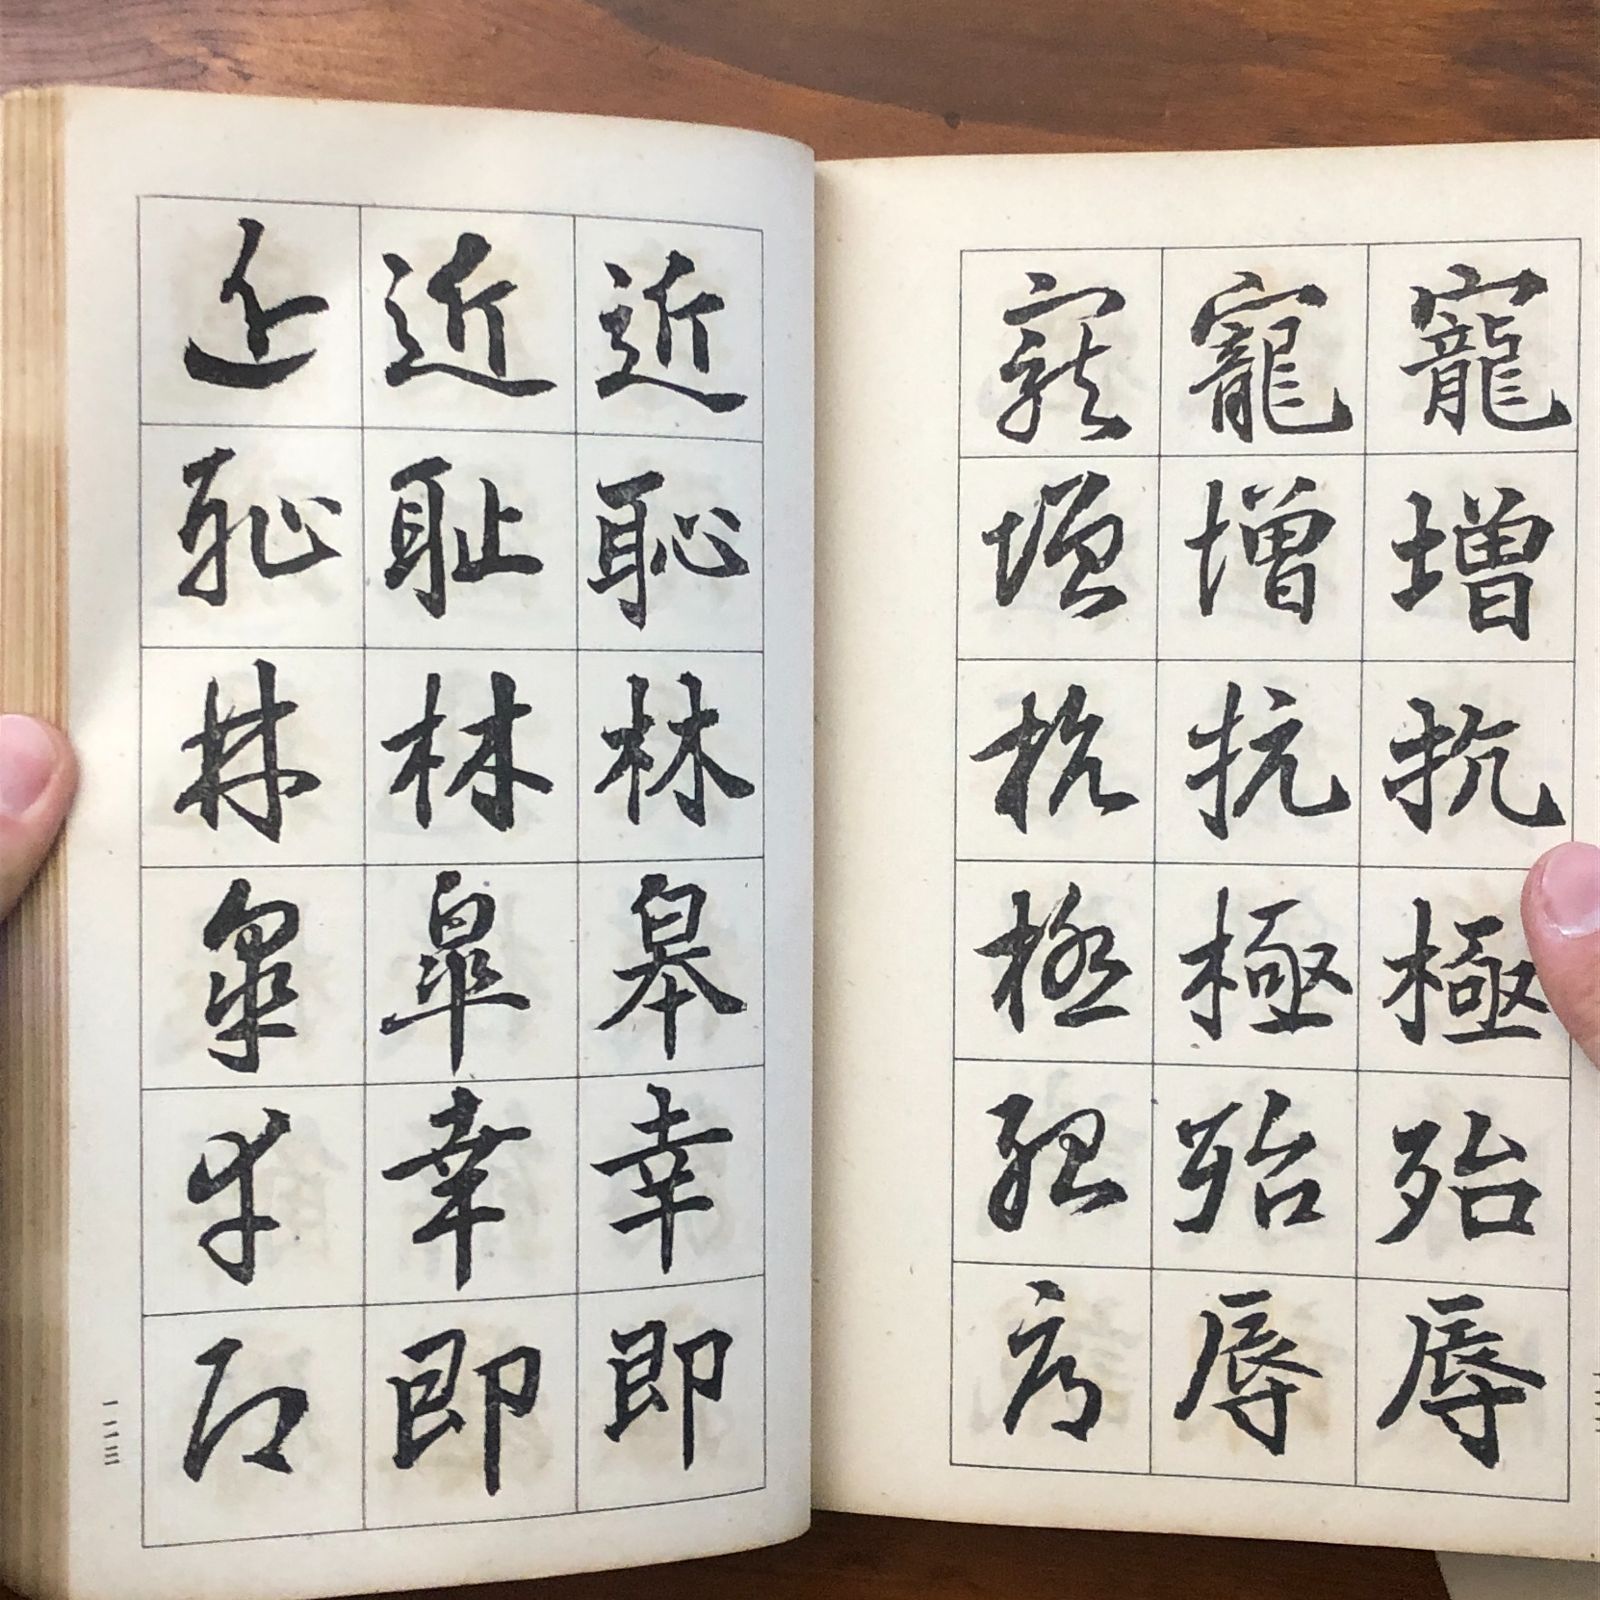 寵增抗極殆辱
寵增抗極殆辱
寵增抗極殆辱
近恥林皋幸即
近耻林皐幸即
近恥林皋幸即
一二三